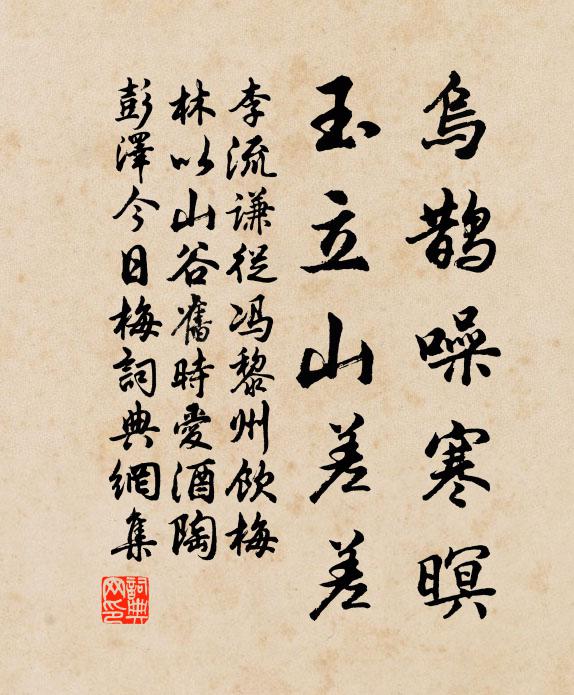 烏鵲噪寒暝
玉立山差差
李流謙從冯黎州飲梅
林以山谷舊時愛酒陶
彭澤今日梅詞典網集
詞典